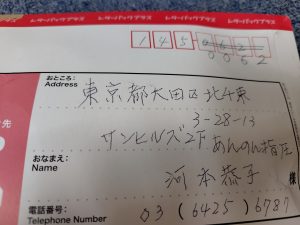 レターパックプラス レターパックプラス レターパックプラス
145
0062
おところ:
Address
東京都大田区北千束
3-28-13
サンヒルズ2F あんのん指圧
おなまえ:
Name
河本恭子
様
電話番号:
Telephone Number
03 (6425) 6787